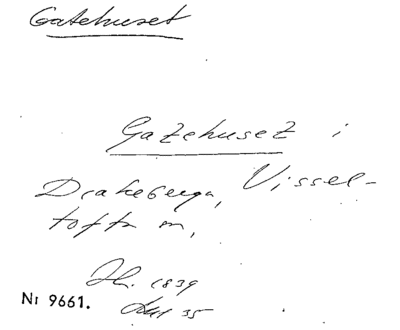 Gatehuset
Gatehuset i
Drakeberga, Vissel-
tofta sn,
Jb. 1839
35
Nr 9661.